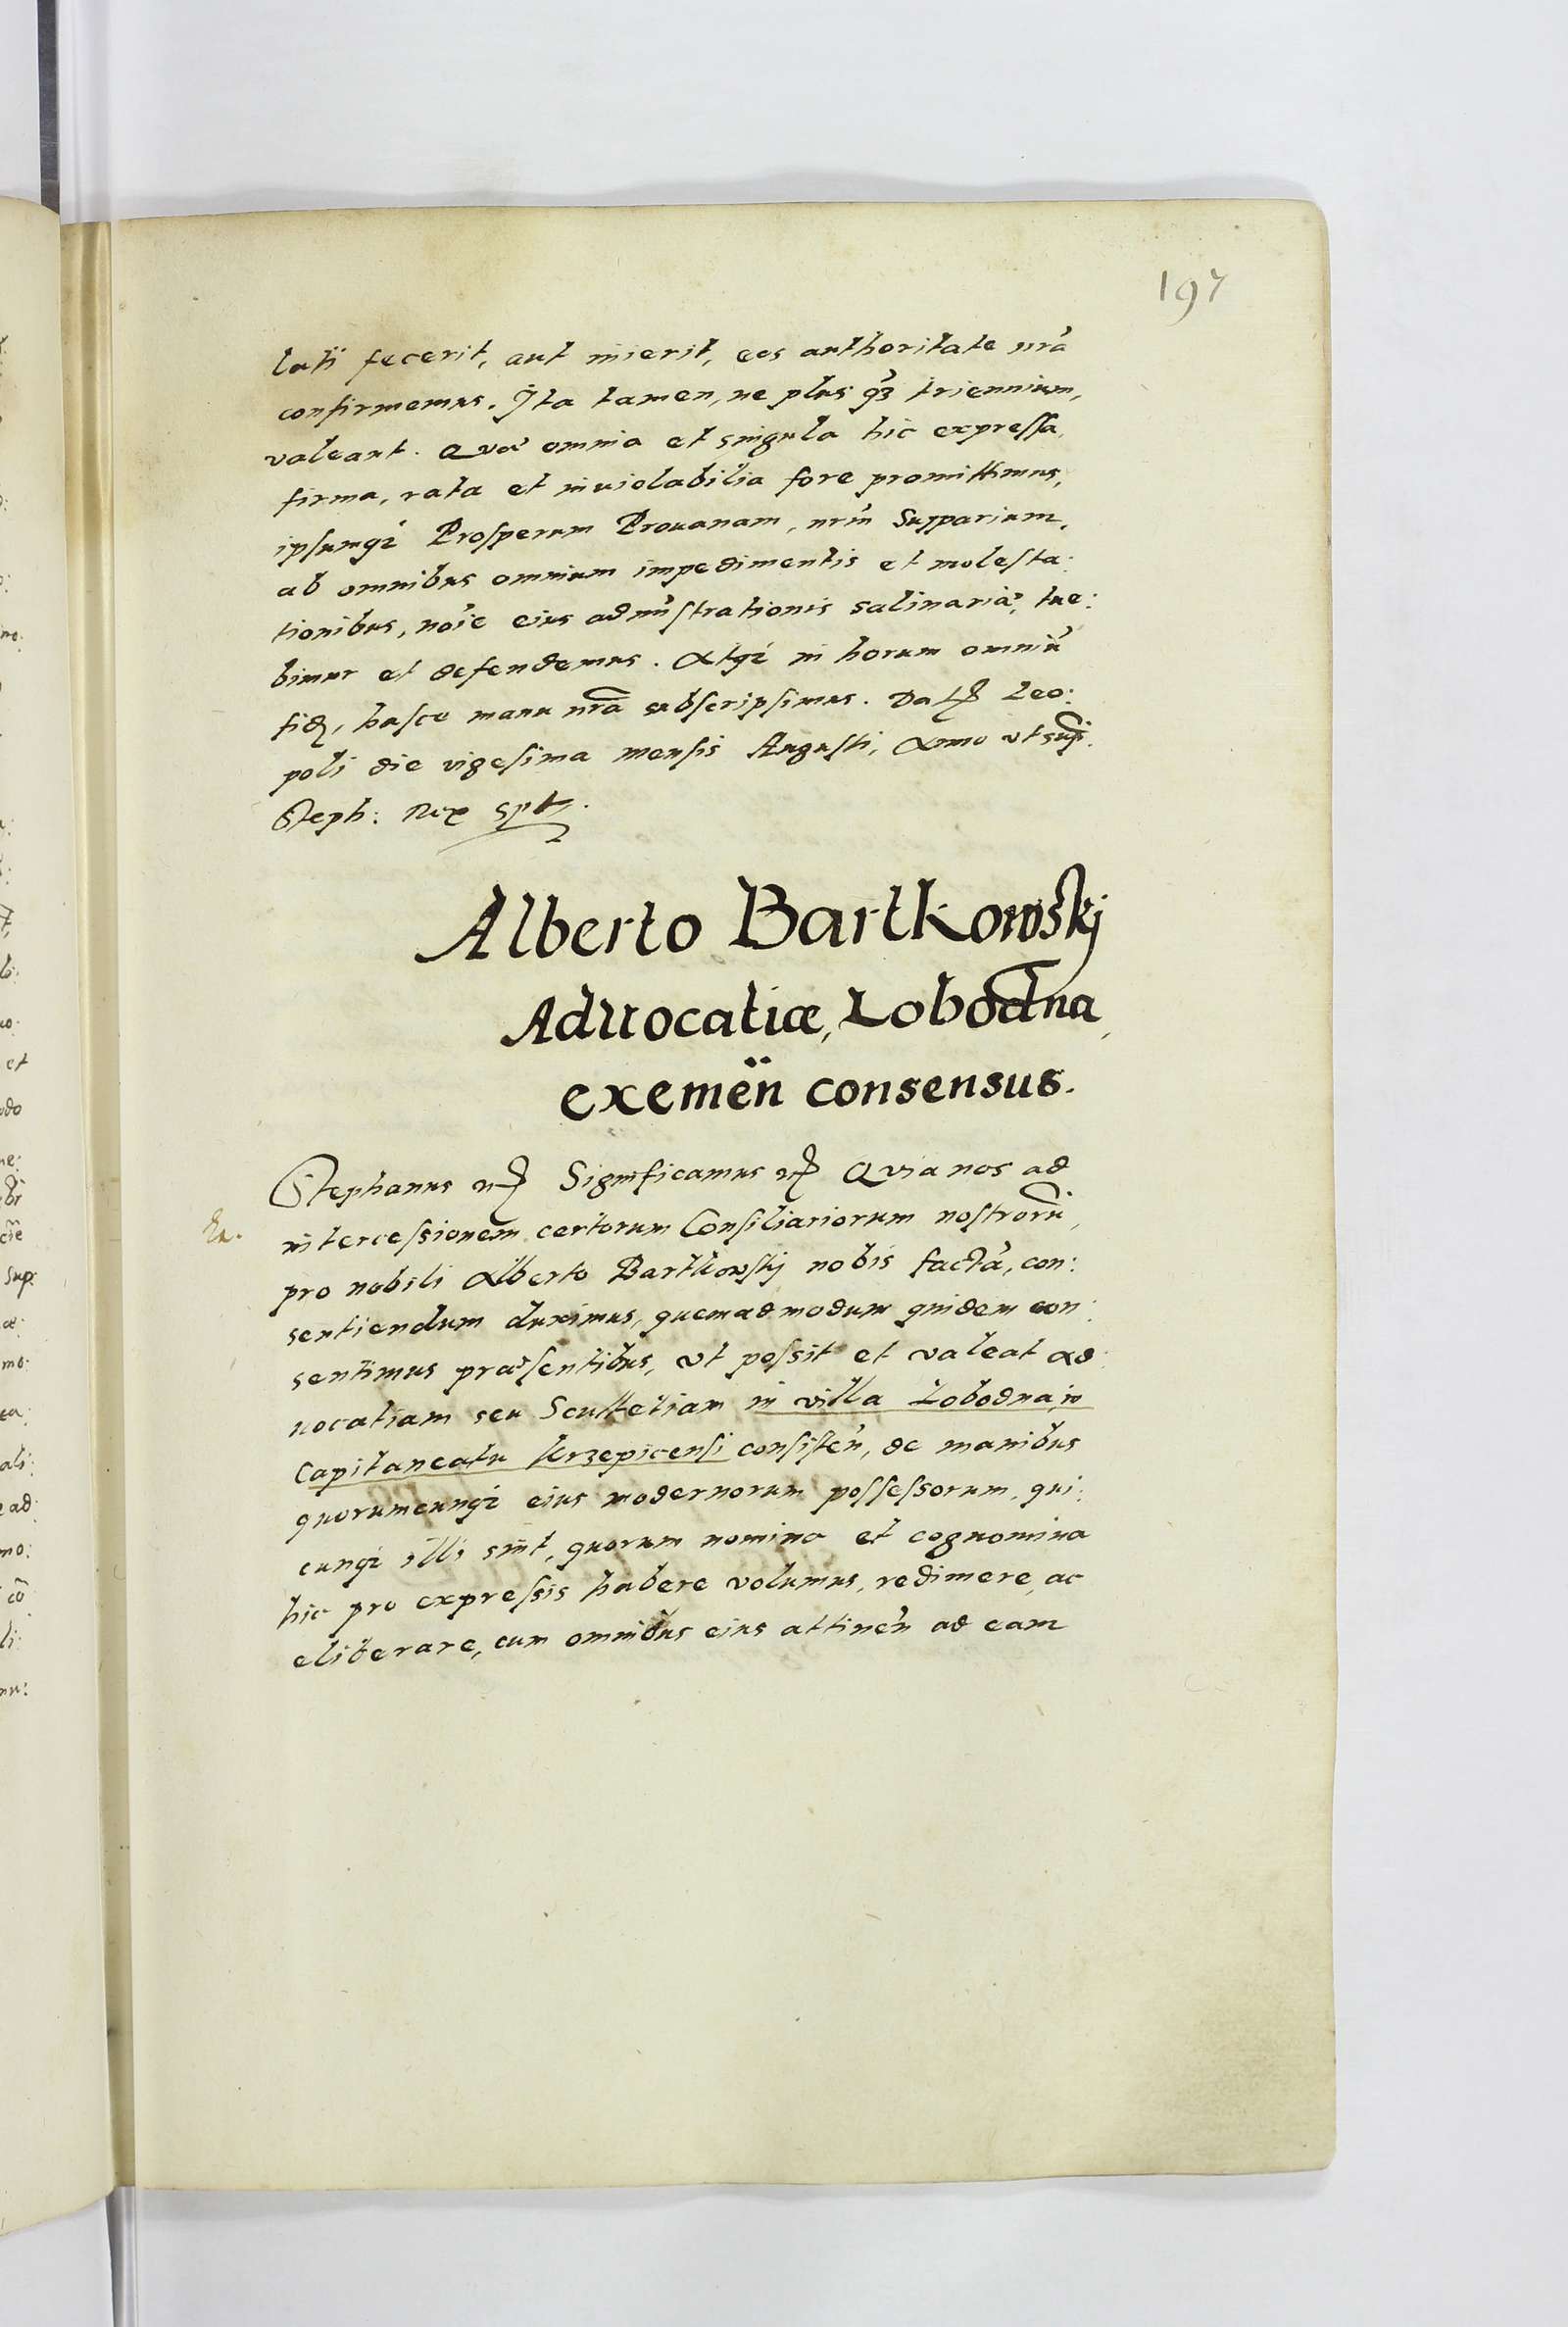 197
lati fecerit, aut inierit, eos authoritate nrã
confirmemus. Ita tamen, ne plus qz triennium,
valeant. Quæ omnia et singula hic expressa,
firma, rata et inuiolabilia fore promittimus,
ipsumqz Prosperum Prouanam, nrm Supparium,
ab omnibus omnium impedimentis et molesta:
tionibus, noĩe eius admĩstrationis salinariæ, tue:
bimur et defendemus. Atqz in horum omniũ
fidẽ, hasce manu nrã subscripsimus. Datẽ Leo:
poli die vigesima mensis Augusti, Anno vt supẽ.
Steph: Rex spt.
Alberto Bartkowskj
Aduocatiæ, Lobodna,
exemẽn consensus.
Stephanus Significamus Quia nos ad
intercessionem certorum Consiliariorum nostrorũ,
pro nobili Alberto Bartkowskj nobis factã, con:
sentiendum duximus, quemadmodum quidem con:
sentimus præsentibus, vt possit et valeat ad:
uocatiam seu Scultetiam in villa Lobodna, in
Capitaneatu Krzepicensi consisteñ, de manibus
quorumcunqz eius modernorum possessorum, qui:
cunqz illi sint, quorum nomina et cognomina
hic pro expressis habere volumus, redimere, ac
eliberare, cum omnibus eius attineñ ad eam